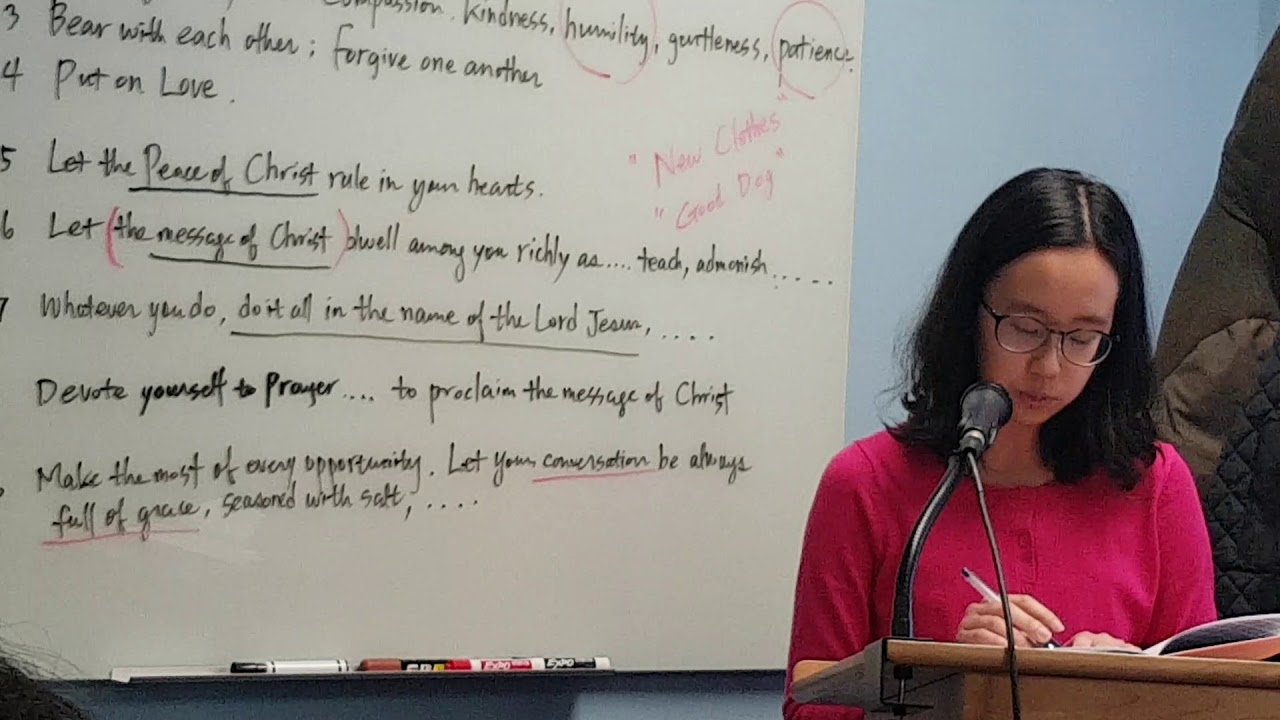 3 compassion, kindness, humility, gentleness, patience.
Bear with each other; forgive one another
4 Put on Love.
"New Clothes"
"Good Dog"
5 Let the Peace of Christ rule in your hearts.
6 Let (the message of Christ) dwell among you richly as.... teach, admonish.....
7 Whatever you do, do it all in the name of the Lord Jesus, ....
Devote yourself to Prayer.... to proclaim the message of Christ
Make the most of every opportunity. Let your conversation be always
full of grace, seasoned with salt, ....
EXPO
EXPO